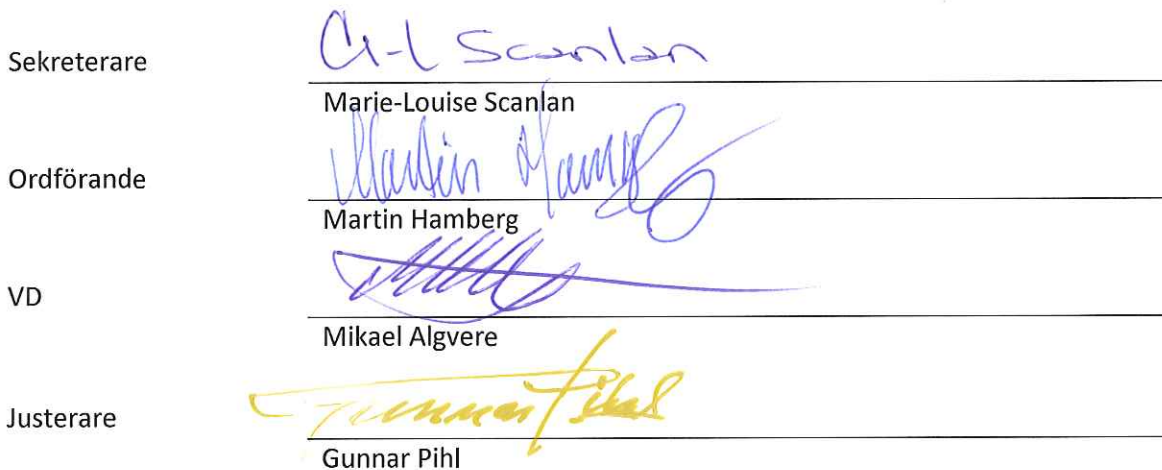 Sekreterare
M-L Scanlan
Marie-Louise Scanlan
Ordförande
Martin Hamberg
Martin Hamberg
VD
Mikael Algvere
Justerare
Gunnar Pihl
Gunnar Pihl